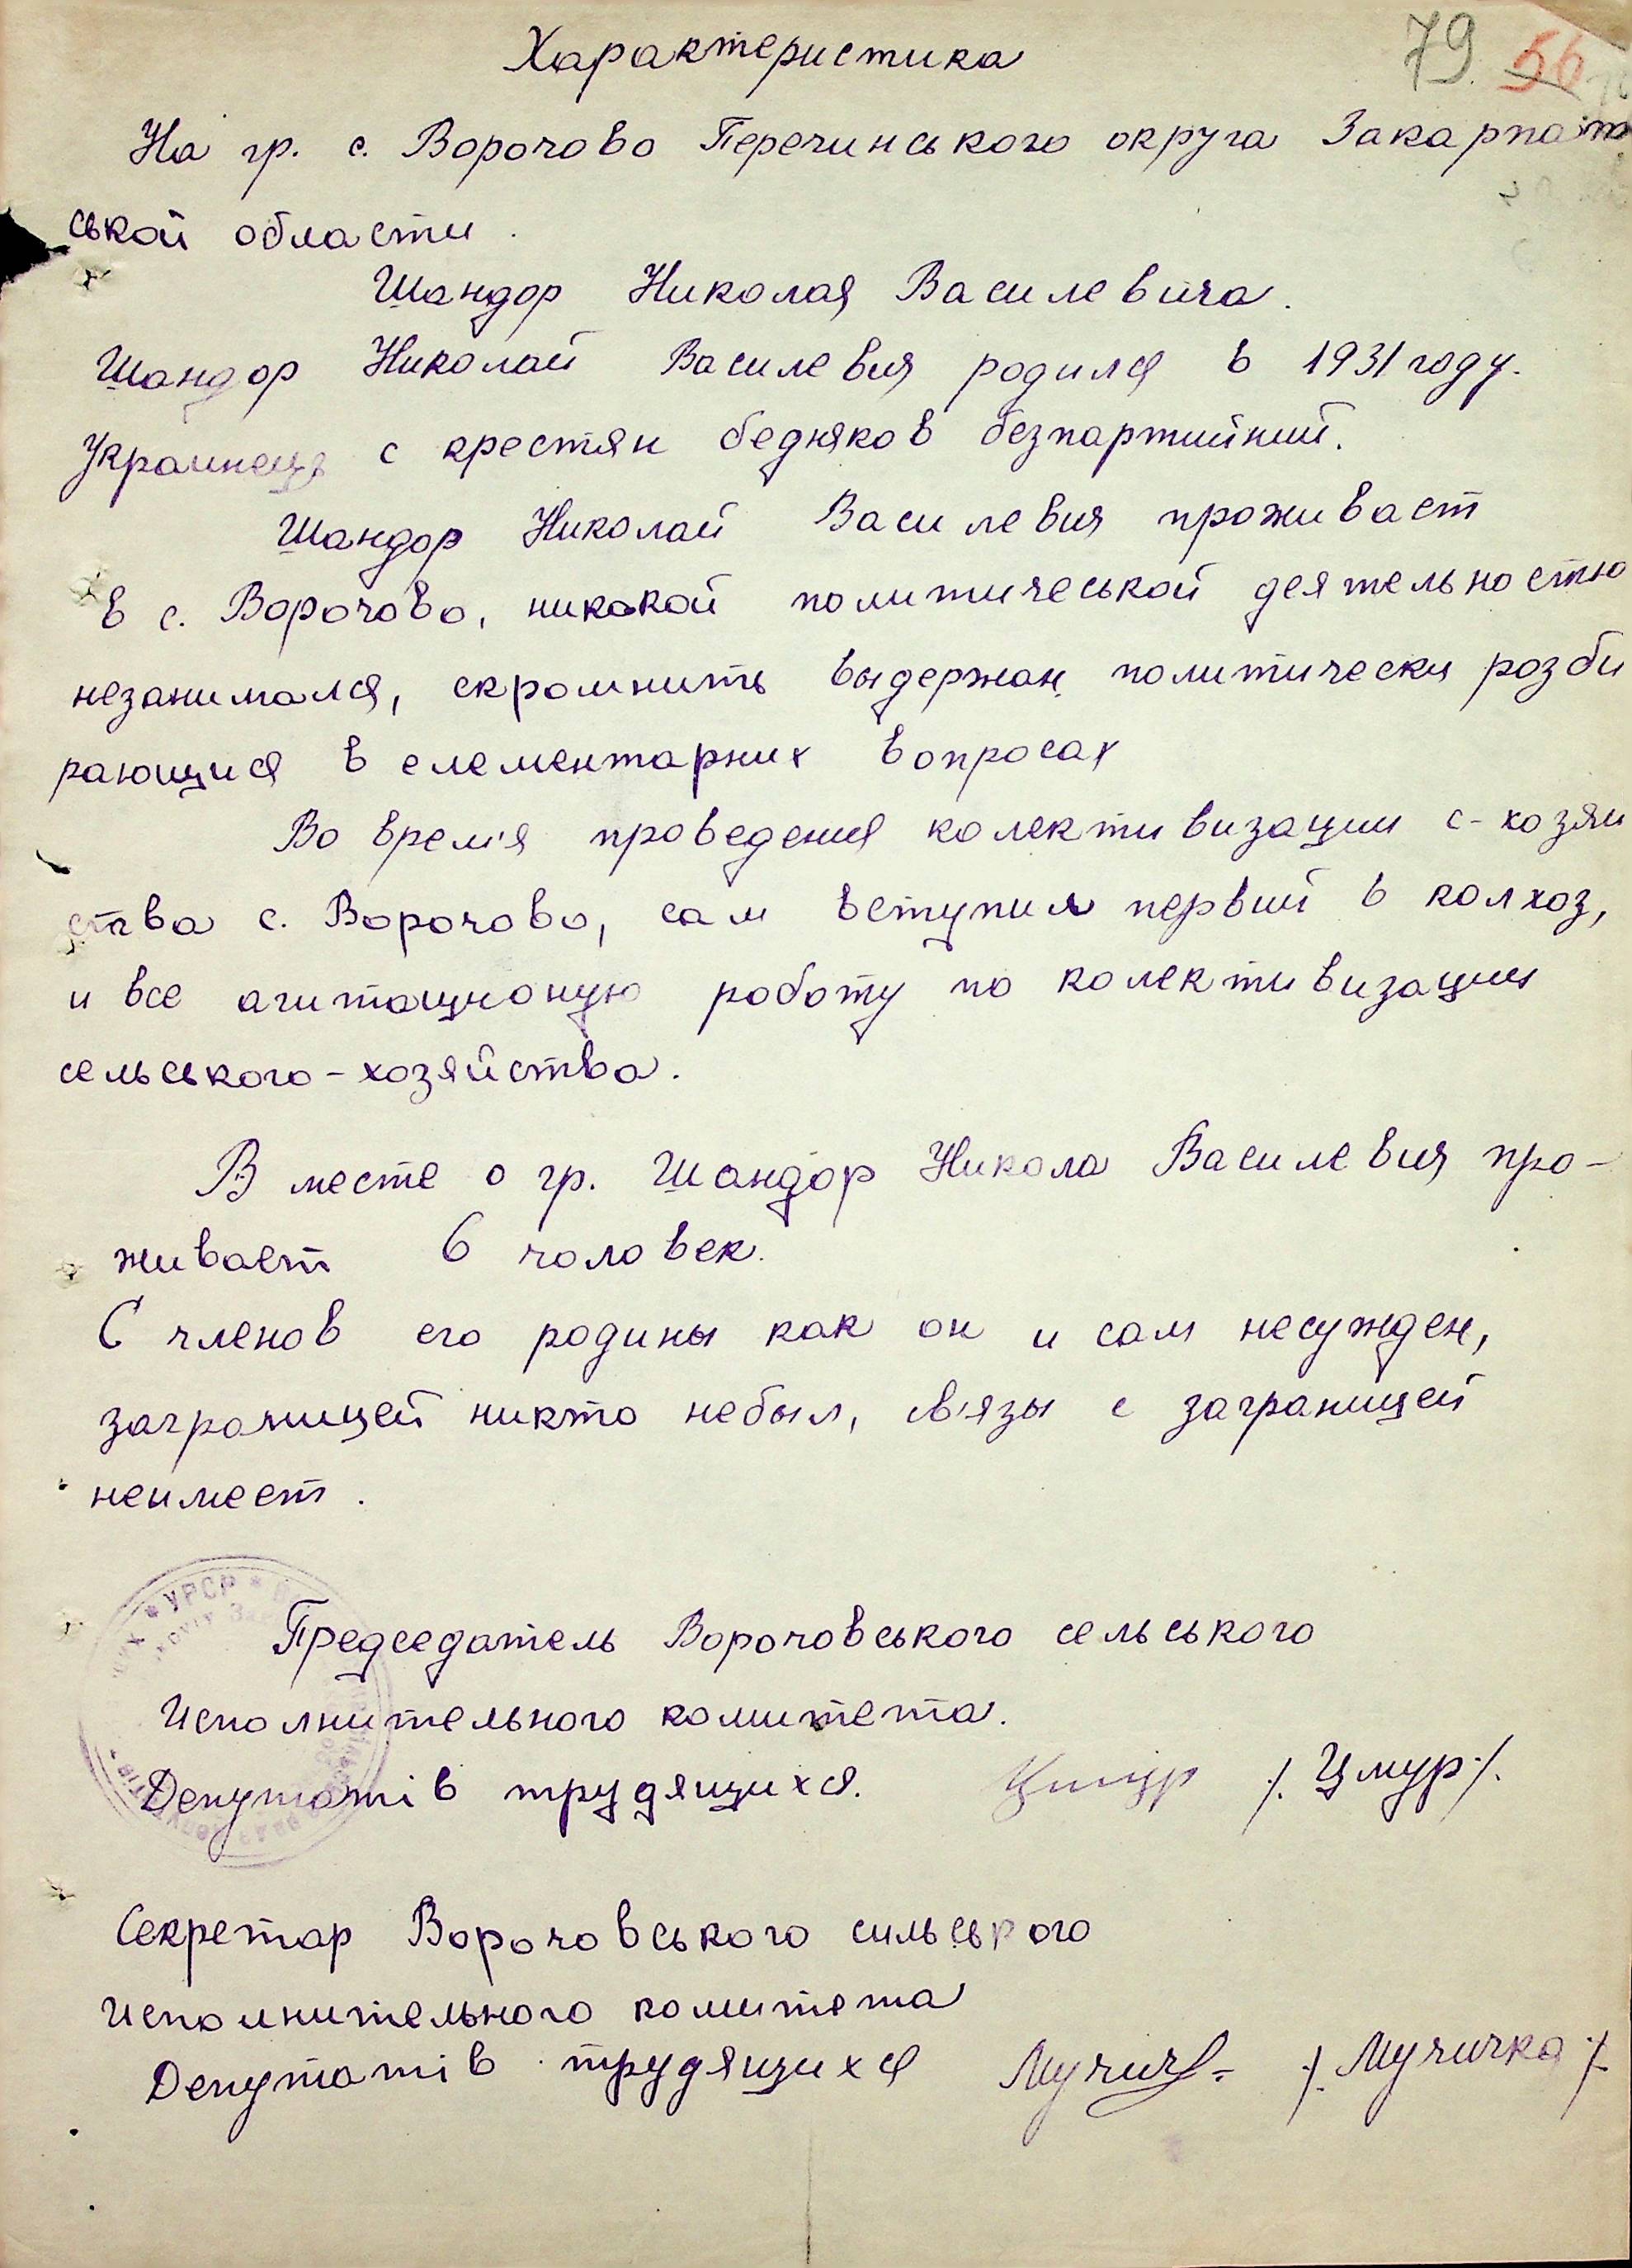 79. 56
Характеристика
На гр. с. Ворочово Перечинського округа Закарпат
ськой области.
Шандор Николая Василевича.
Шандор Николай Василевич родился в 1931 году.
Украинець с крестян бедняков безпартийний.
Шандор Николай Василевич проживает
в с. Ворочово, никакой политичеськой деятельностю
незанимался, скромнить выдержан, политически розби
рающися в елементарних вопросах
Во врем'я проведения колективизации с-хозяи
ства с. Ворочово, сам вступил первий в колхоз,
и все агитационую роботу по колективизации
сельського-хозяйства.
В месте о гр. Шандор Никола Василевич про-
живает 6 чоловек.
С членов его родины как он и сам несужден,
заграницей никто небыл, св'язы с заграницей
неимеет.
УРСР
Председатель Ворочовського сельського
Исполнительного комитета.
Депутатів трудящихся. Цмур /. Цмур ./.
Секретар Ворочовського сильського
Исполнительного комитета
Депутатів трудящихся /. Мучичка ./.